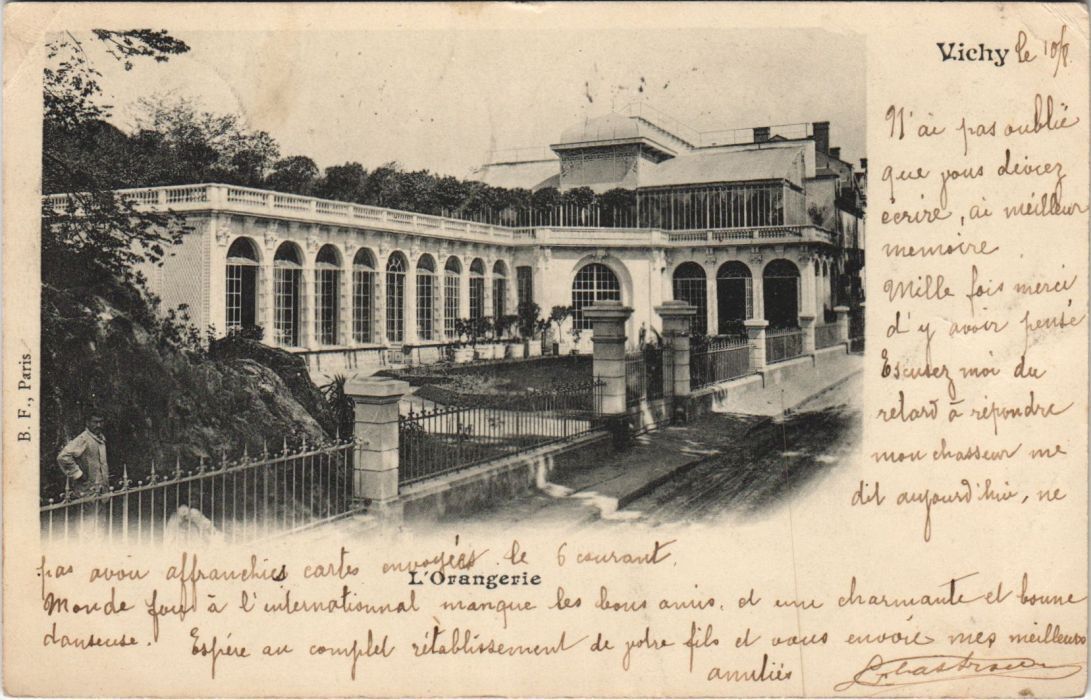 Vichy le 10/8
N'ai pas oublié
que vous deviez
écrire, ai meilleur
memoire
Mille fois merci
d'y avoir pensé
Escusez moi du
retard à répondre
mon chasseur me
dit aujourd'hui, ne
pas avoir affranchies cartes envoyées le 6 courant.
L'Orangerie
Monde fou à l'internationnal manque les bons amis, et une charmante et bonne
danseuse. Espére au complet rétablissement de votre fils et vous envoie mes meilleurs
amitiés
B. F., Paris